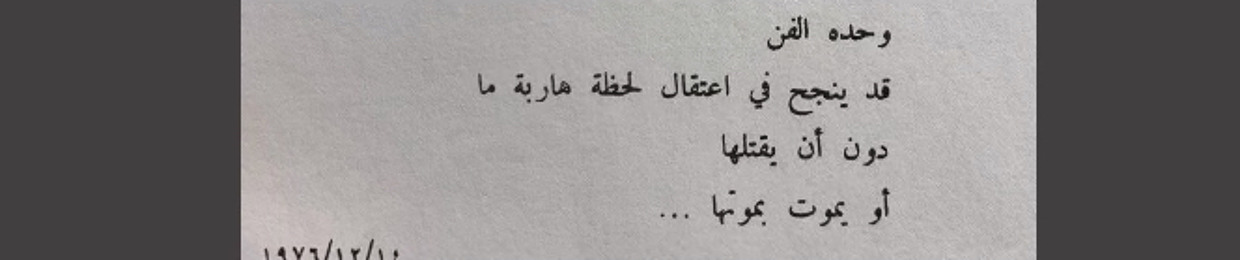 وحده الفن
قد ينجح في اعتقال لحظة هاربة ما
دون أن يقتلها
أو يموت بموتها ...